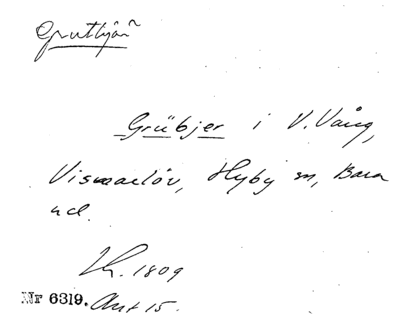 Grübjer i V. Vång,
Vismarlöv, Hyby sn, Bara
hd.
Lh. 1809
Nr 6319. Akt 15.